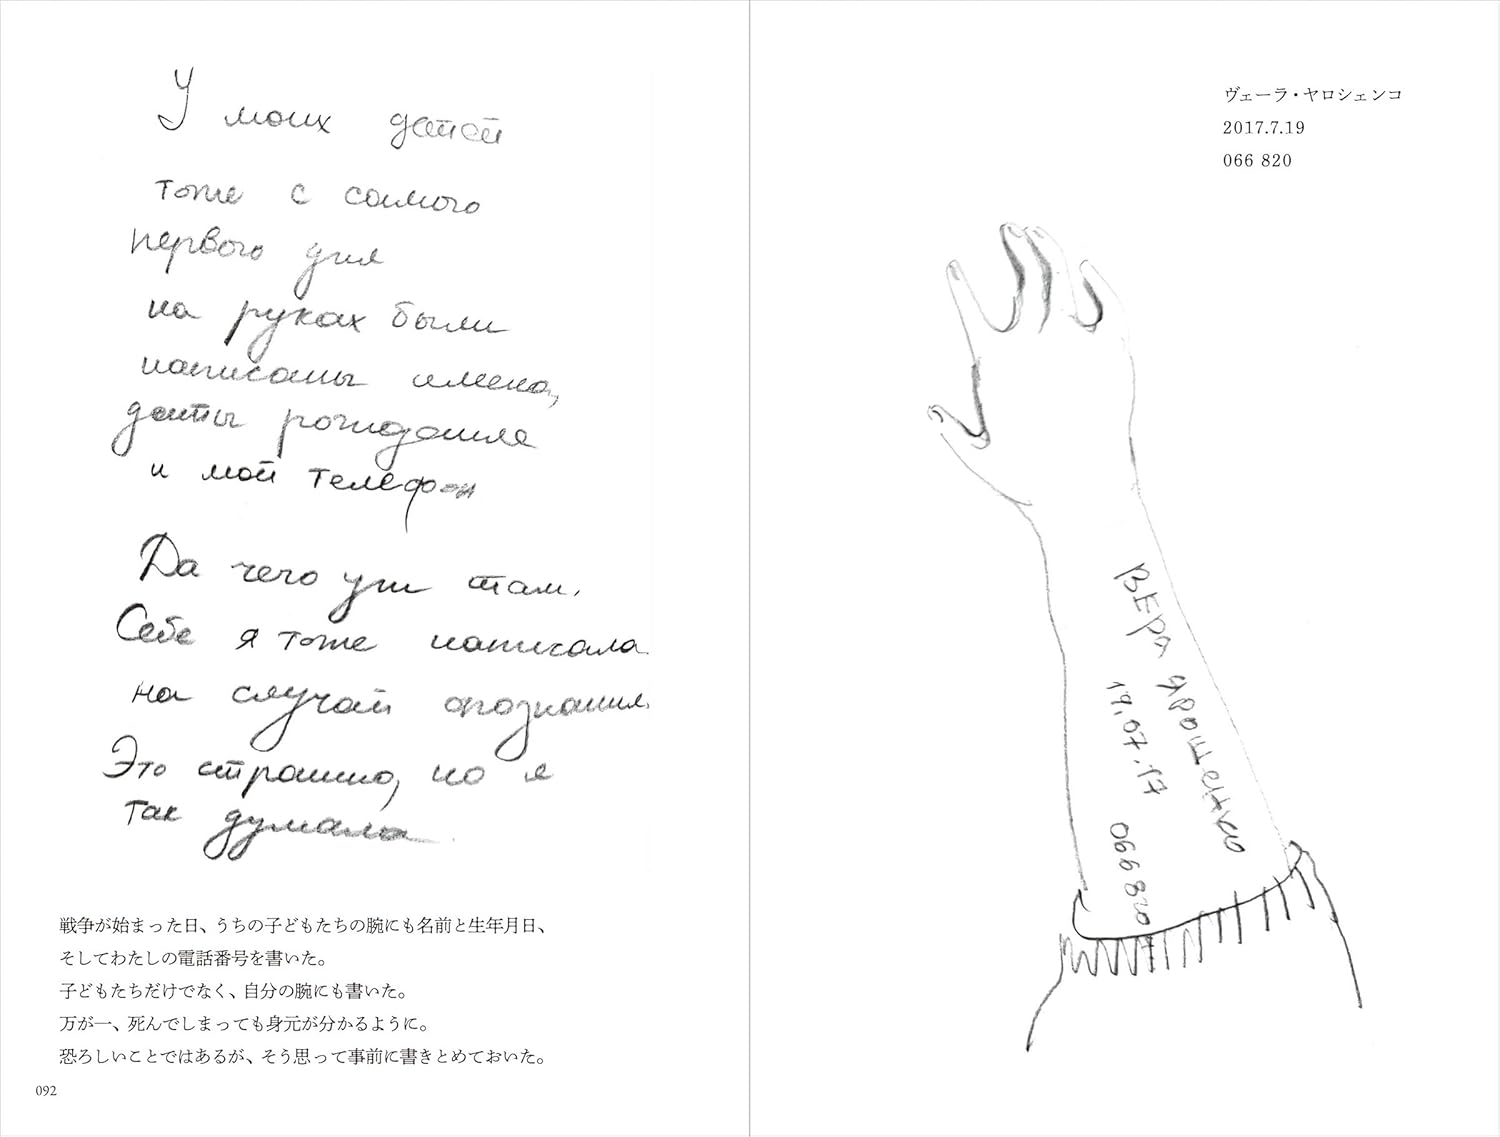 У моих детей
тоже с самого
первого дня
на руках были
написаны имена,
даты рождения
и мой телефон
Да чего уж там.
Себе я тоже написала
на случай опознания.
Это страшно, но я
так думала.
戦争が始まった日、うちの子どもたちの腕にも名前と生年月日、
そしてわたしの電話番号を書いた。
子どもたちだけでなく、自分の腕にも書いた。
万が一、死んでしまっても身元が分かるように。
恐ろしいことではあるが、そう思って事前に書きとめておいた。
092
ヴェーラ・ヤロシェンコ
2017.7.19
066 820
ВЕРА ЯРОШЕНКО
19.07.17
066 820